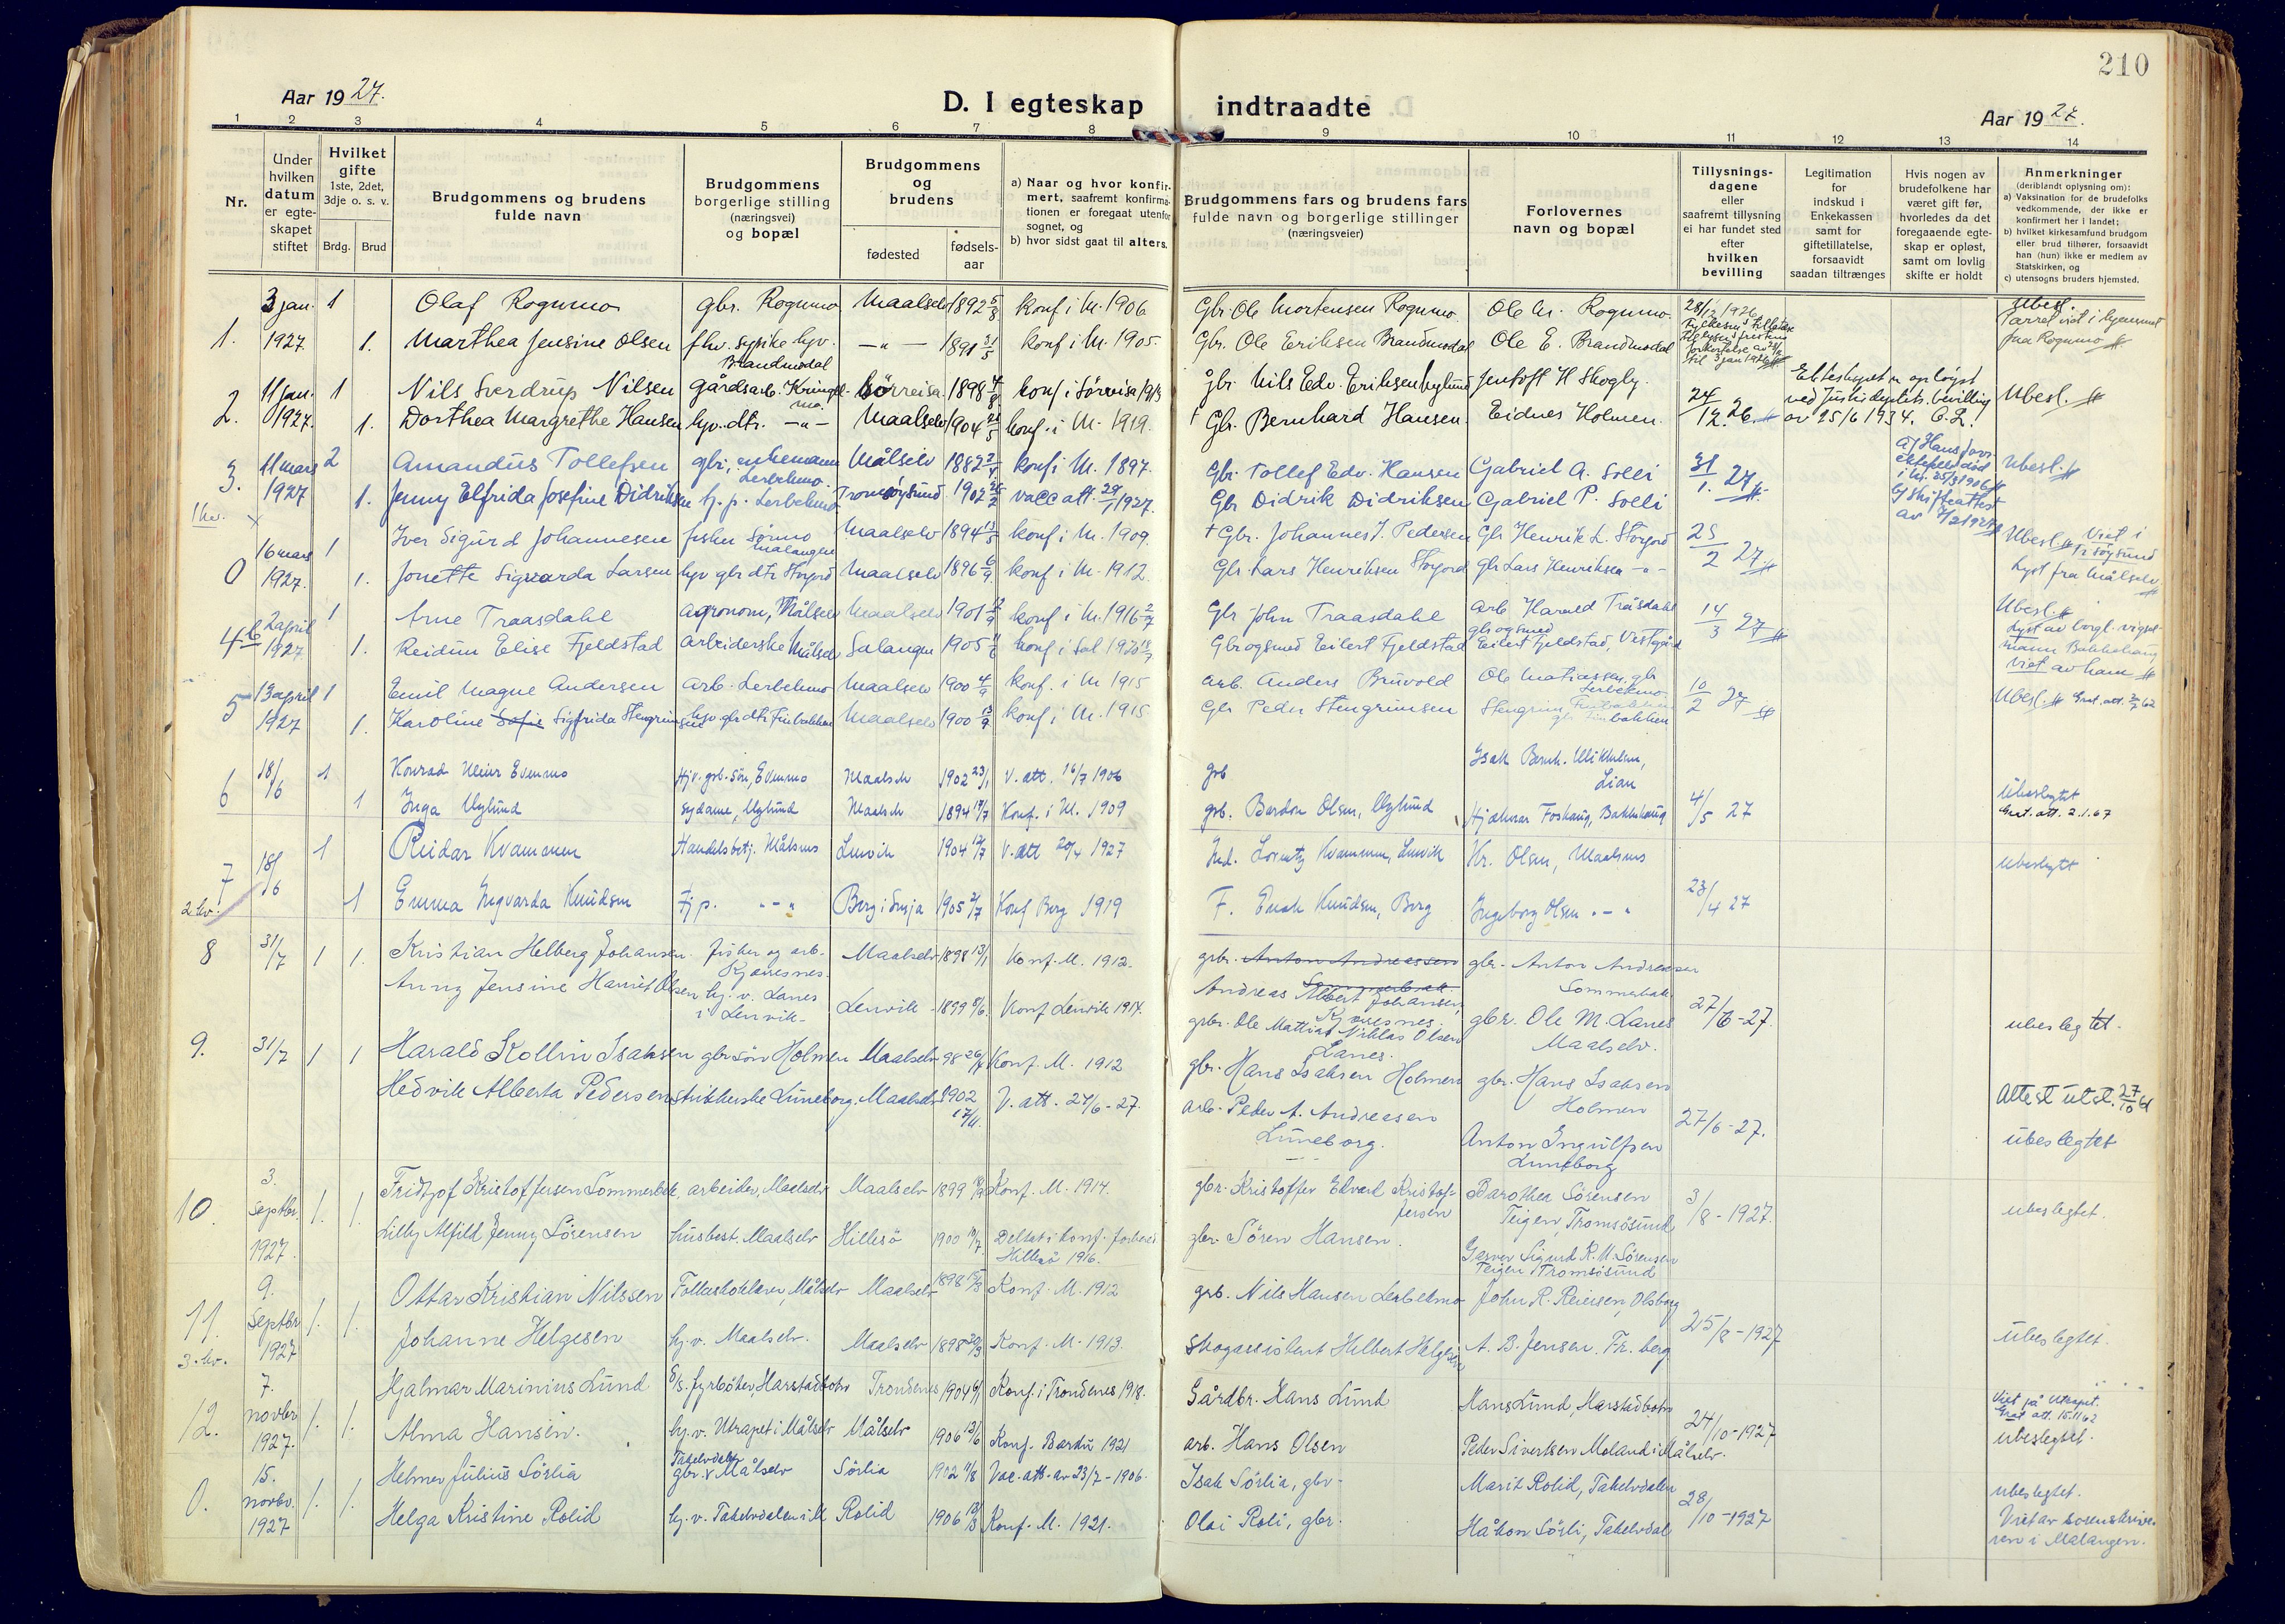 210
Aar 1927.
D. I egteskap indtraadte
Aar 1927.
1 2 3 4 5 6 7 8 9 10 11 12 13 14
Nr.
Under hvilken datum er egte-skapet stiftet
Hvilket gifte
1ste, 2det, 3dje o. s. v.
Brdg. Brud
Brudgommens og brudens fulde navn
Brudgommens borgerlige stilling (næringsvei) og bopæl
Brudgommens og brudens
fødested
fødsels-aar
a) Naar og hvor konfir-mert, saafremt konfirma-tionen er foregaat utenfor sognet, og
b) hvor sidst gaat til alters.
Brudgommens fars og brudens fars fulde navn og borgerlige stillinger (næringsveier)
Forlovernes navn og bopæl
Tillysnings-dagene eller saafremt tillysning ei har fundet sted efter hvilken bevilling
Legitimation for indskud i Enkekassen samt for giftetillatelse, forsaavidt saadan tiltrænges
Hvis nogen av brudefolkene har været gift før, hvorledes da det foregaaende egte-skap er opløst, samt om lovlig skifte er holdt
Anmerkninger
(deriblandt oplysning om):
a) Vaksination for de brudefolks vedkommende, der ikke er konfirmert her i landet;
b) hvilket kirkesamfund brudgom eller brud tilhører, forsaavidt han (hun) ikke er medlem av Statskirken, og
c) utensogns bruders hjemsted.
1. 3 jan. 1927. 1 Olaf Rognmo gbr. Rognmo Maalselv 1892 5/8 konf i M. 1906 Gbr. Ole Mortensen Rognmo Ole M. Rognmo. 28/12 1926 Ubesl.
1. Marthea Jensine Olsen fhv. sypike hjv. Brandmodal —"— 1891 31/5 konf i M. 1905. Gbr. Ole Eriksen Brandmodal Ole E. Brandmodal til 3 jan 1926 faa Rognmo
2. 11 jan. 1927. 1 Nils Sverdrup Nilsen gårdsarb. Kringelmo. Sørreisa 1898 4/8 konf i Sørreisa 1913 gbr. Nils Edv. Eriksen Nylund Jentoft H Skogly. 24/12 26 Ekteskapet er opløyst ved Justisdeptets. bevilling av 25/6 1934. Ubesl.
1. Dorthea Margrethe Hansen hjv. dtr. —"— Maalselv 1904 konf. i M. 1919. † Gbr. Bernhard Hansen. Eidnes Holmen.
3. 11 mars 1927 2 Amandus Tollefsen gbr., enkemann Lerbekmo. Målselv 1882 konf i M. 1897. Gbr. Tollef Edv. Hansen Gabriel A. Solli 31/1. 27 Ubesl.
1. Jenny Elfrida Josefine Didriksen hj. p. Lerbekmo Tromsøysund 1902 vacc att. 29/1 1927. Gbr Didrik Didriksen Gabriel P. Solli b) Skifteattest
1 kv. x
0 16 mars 1927. 1 Iver Sigurd Johannesen fisker Sörmo Malangen Maalselv 1894 konf i M. 1909. † Gbr. Johannes J. Pedersen Gbr Henrik L. Storjord 25/2 27 Ubesl. Viet i Tr.søysund
1. Jonette Sigvarda Larsen hjv gbr dtr Storjord Maalselv 1896 6/9 konf i M. 1912. Gbr. Lars Henriksen Storjord gbr Lars Henriksen —"— Lyst fra Målselv
4 b 2 april 1927 1 Arne Traasdahl agronom, Målselv Maalselv 1901 konf i M. 1916 2/7 Gbr John Traasdahl Arb. Harald Tråsdahl 14/3 27 Ubesl.
1. Reidun Elise Fjeldstad arbeiderske Målselv Salangen 1905 konf i Sal 1920 Gbr og smed Eilert Fjeldstad gbr og smed Eilert Fjeldstad, Vestgård Lyst av borgl. vigselmann Bakkehaug Viet av ham
5 13 april 1927 1 Emil Magne Andersen Arb. Lerbekmo Maalselv 1900 4/9 konf. i M 1915 arb. Anders Bruvold Ole Matiassen, gbr Lerbekmo 10/2 27 Ubesl. Grat. att. 2/7 62
1. Karoline Sofie Sigfrida Stengrimsen hjv gbr dtr Finbakken Maalselv 1900 13/9 konf i M. 1915 Gbr Peder Stengrimsen Stengrim Finbakken
6 18/6 1 Konrad Meier Evenmo Hjv. grb. søn, Evenmo Maalselv 1902 23/1 V. att. 16/7 1906 grb Isak Bernh. Lian 4/5 27
1 Inga Nylund sydame, Nylund Maalselv 1894 17/7 Konf. i M. 1909 grb. Bardon Olsen, Nylund Hjalmar Foshaug, Bakkehaug ubeslegtet Grat. att. 2.1.67
7 18/6 1 Reidar Kvammen Handelsbetj. Målsnes Lenvik 1904 17/7 V. att 20/4 1927 Lorentz Kvammen, Lenvik Kr. Olsen, Maalsnes 23/4 27 ubeslegtet
2 kv. 1 Emma Ingvarda Knudsen Hj p. —"— Berg i Senja 1905 2/7 Konf Berg 1919 F. Enok Knudsen, Berg Ingeborg Olsen —"—
8 31/7 1 1. Kristian Helberg Johansen. fisker og arb. Kjæresnes. Maalselv 1898 13/1 Konf. M. 1912. grbr. Anton Andreassen Sommerbak. gbr. Anton Andreassen Sommerbak. 27/6-27.
Anny Jensine Hanset Olsen hj. v. Lanes i Lenvik. Lenvik 1899 8/6. Konf Lenvik 1914. Andreas Albert Johansen, Kjæresnes. grbr. Ole Mattias Niklas Olsen Lanes. gbr. Ole M. Lanes Maalselv. ubeslegtet.
9. 31/7 1 1 Harald Kollin Isaksen gbr søn Holmen Maalselv 98 26/4 Konf. M. 1912 gbr. Hans Isaksen Holmen gbr. Hans Isaksen Holmen 27/6-27. Attest utst. 27/10 61
Hedvik Alberta Pedersen strikkerske Luneborg. Maalselv 1902 17/11. V. att. 24/6-27. arb. Peder A. Andreasen Luneborg. Anton Ingulfsen Luneborg ubeslegtet
10. 3. Septbr. 1927. 1. 1. Fridtjof Kristoffersen Sommerbak, arbeider, Maalselv Maalselv 1899 Konf. M. 1914. gbr. Kristoffer Edvard Kristoffersen Dorothea Sörensen Teigen, Tromsösund 3/8-1927. ubeslegtet.
Lilly Alfild Jenny Sörensen husbest. Maalselv Hillesö 1900 Deltat i konf. forbered Hillesö 1916. gbr. Sören Hansen. Sigurd K. M. Sörensen Teigen Tromsösund
11. 9. Septbr 1927 1. 1. Ottar Kristian Nilssen Folkeskolelærer, Målselv Maalselv 1898 Konf. M. 1912 grb. Nils Hansen Lerbekmo John R. Reiersen, Olsborg 25/8-1927
3. kv. Johanne Helgesen hj. v. Maalselv. Maalselv 1898 Konf. M. 1913. Skogassistent Hilbert Helgesen A. B. Jensen. Fr. berg ubeslegtet.
12. 7. novbr 1927. 1. 1. Hjalmar Marinius Lund fyrböter, Harstadbotn Trondenes 1904 6/1 Konf. i Trondenes 1918. Gårdbr. Hans Lund Hans Lund, Harstadbotn 24/10-1927 Viet på Utrapet. Grat att. 15.11.62
Alma Hansen. hj. v. Utrapet i Målselv Målselv 1906 13/6 Konf. Bardu 1921 arb. Hans Olsen Peder Sivertsen Moland i Målselv. ubeslegtet.
0. 15. novbr. 1927 1. 1. Helmer Julius Sörlia Takelvdalen gbr. v Målselv Sörlia 1902 11/8 Vac. att. av 23/7-1906. Isak Sörlia, gbr. Marit Rolid, Takelvdalen 28/10-1927 ubeslegtet.
Helga Kristine Rolid hj. v. Takelvdalen i M Rolid 1906 Konf. M. 1921. Olai Roli, gbr. Håkon Sörli, Takelvdal Viet av sorenskriveren i Malangen.